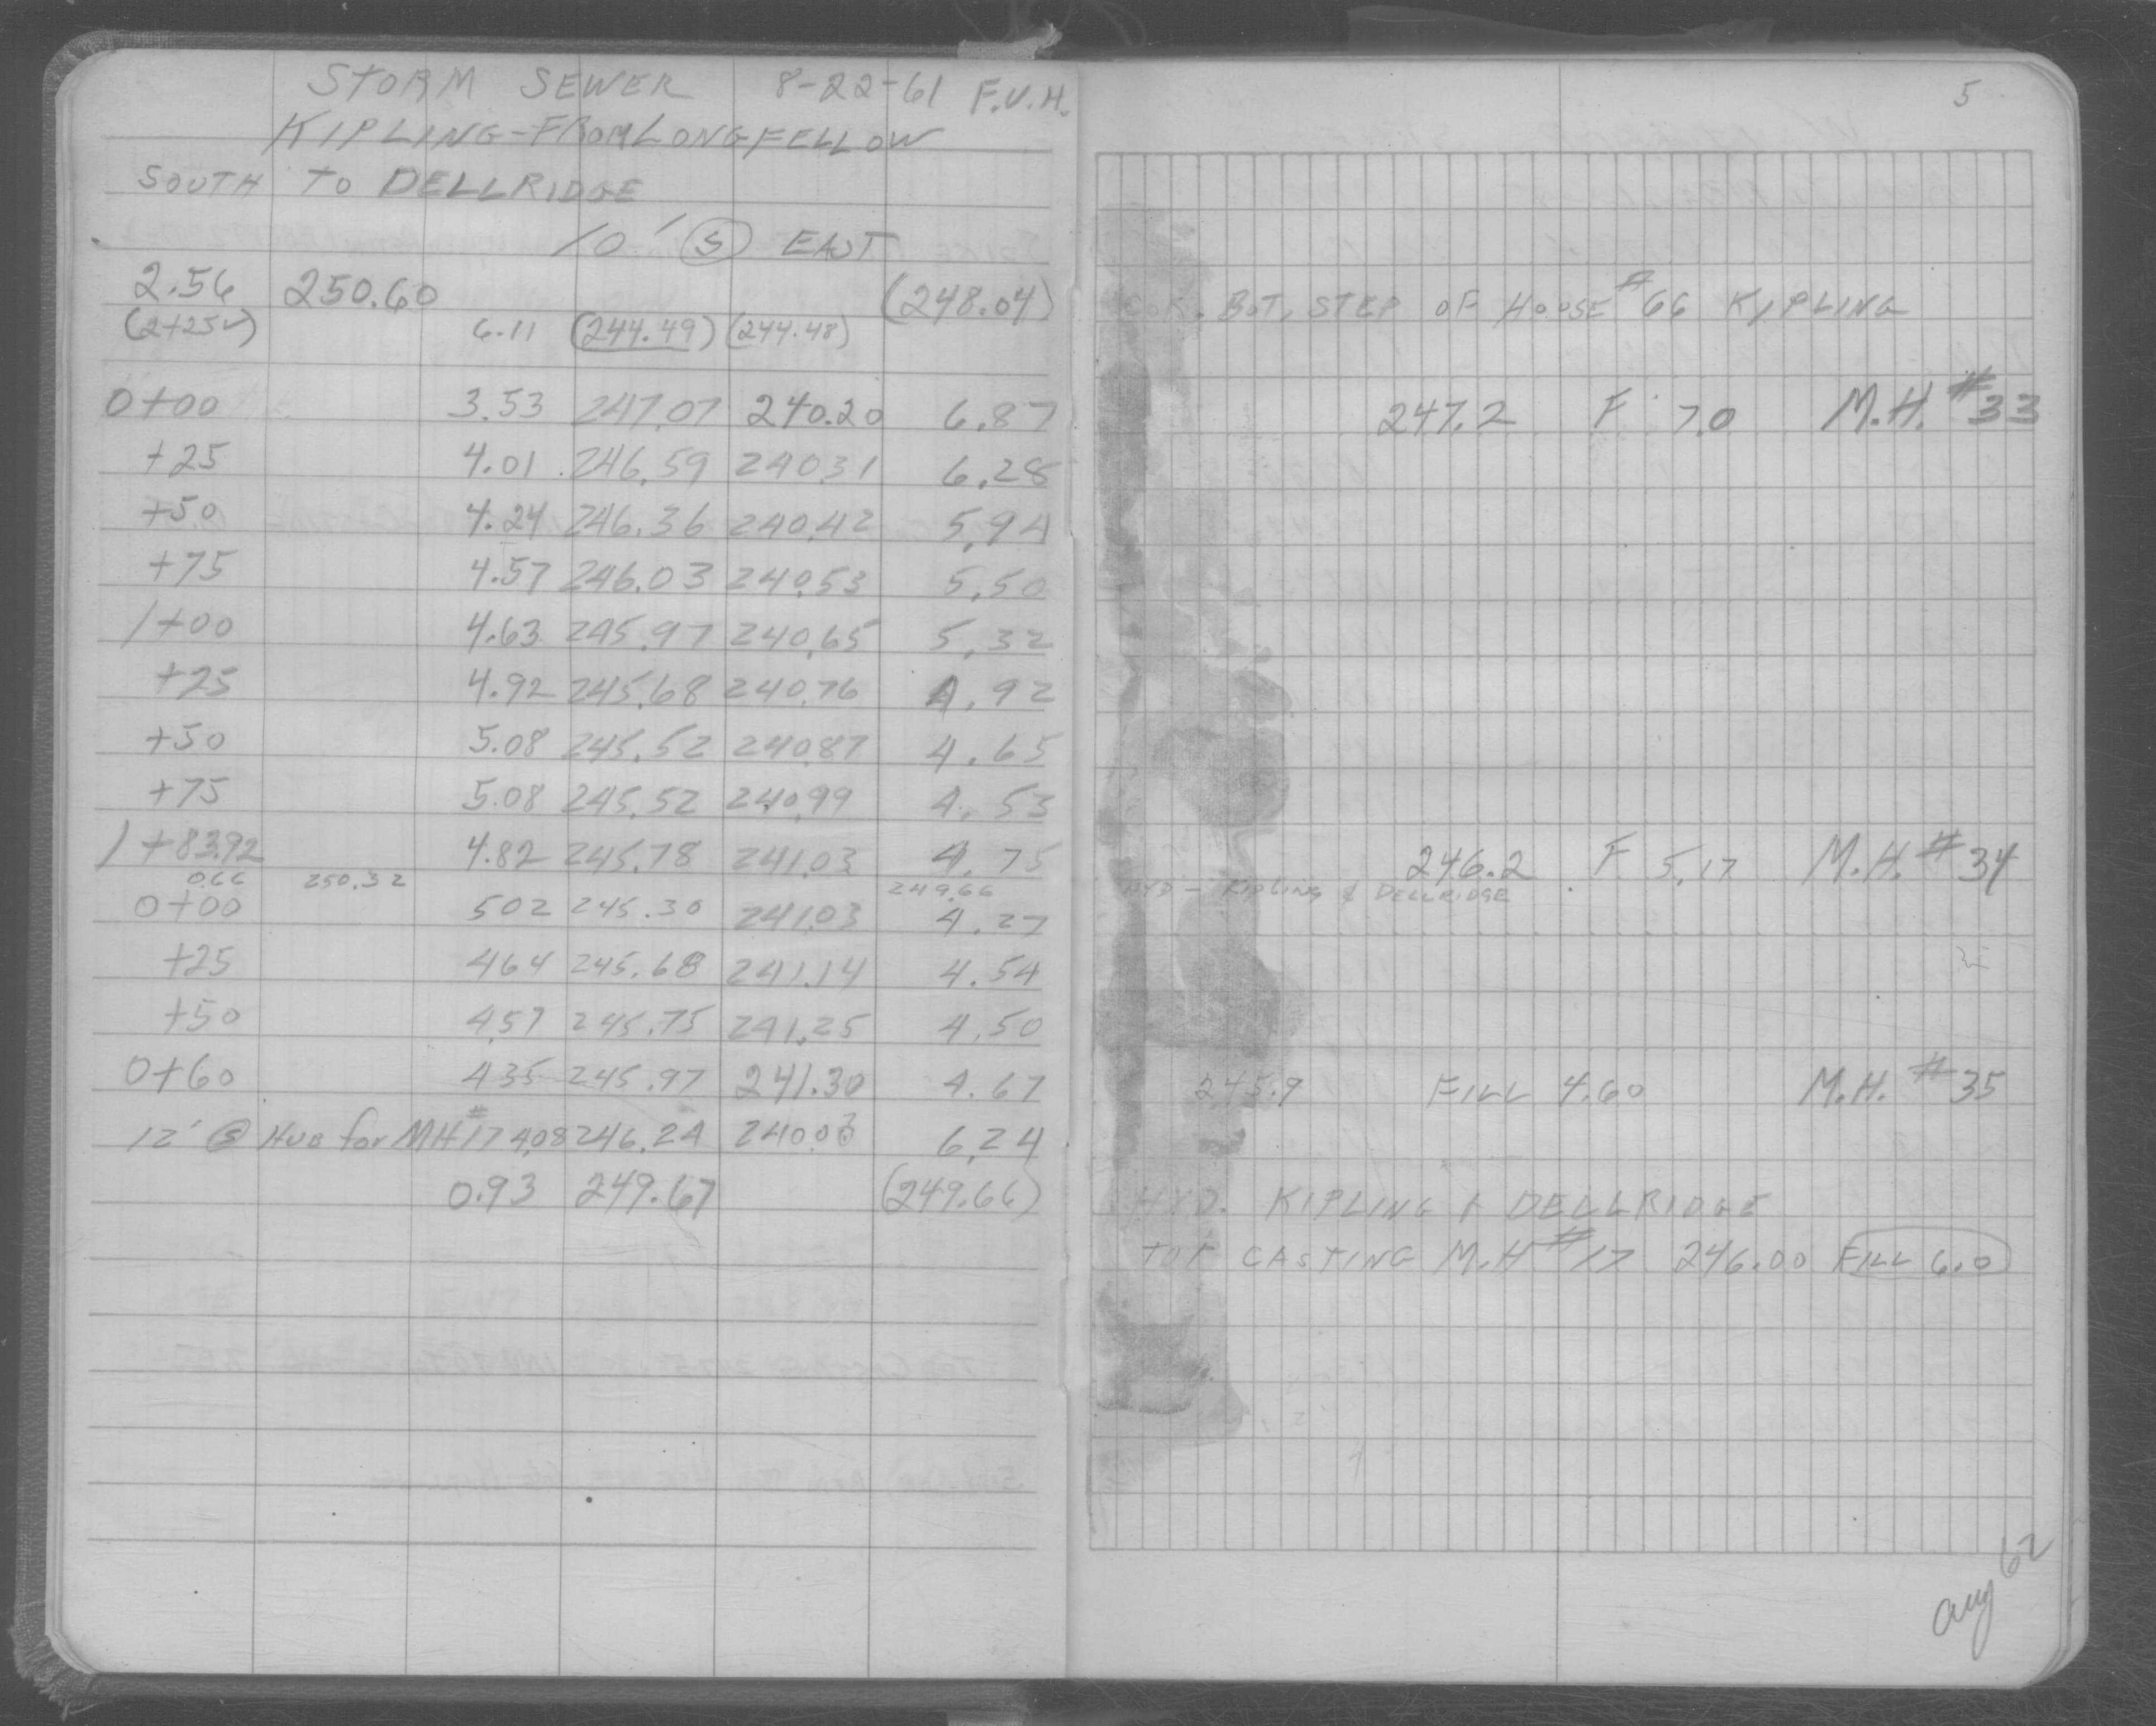 STORM SEWER 8-22-61 F.V.H.
KIPLING-FROM LONGFELLOW
SOUTH TO DELLRIDGE
10' (S) EAST
2.56 250.60 (248.04)
(2+25✓) 6.11 (244.49) (244.48)
0+00 3.53 247.07 240.20 6.87
+25 4.01 246.59 240.31 6.28
+50 4.24 246.36 240.42 5.94
+75 4.57 246.03 240.53 5.50
1+00 4.63 245.97 240.65 5.32
+25 4.92 245.68 240.76 4.92
+50 5.08 245.52 240.87 4.65
+75 5.08 245.52 240.99 4.53
1+83.92 4.82 245.78 241.03 4.75
0.66 250.32 249.66
0+00 502 245.30 241.03 4.27
+25 464 245.68 241.14 4.54
+50 4.57 245.75 241.25 4.50
0+60 435 245.97 241.30 4.67
12' (S) HUB for MH #17 4.08 246.24 240.0 6.24
0.93 249.67 (249.66)
5
COR. BOT. STEP OF HOUSE #66 KIPLING
247.2 F 7.0 M.H. #33
246.2 F 5.17 M.H. #34
HYD - KIPLING & DELLRIDGE
245.9 FILL 4.60 M.H. #35
HYD. KIPLING & DELLRIDGE
TOP CASTING M.H #17 246.00 FILL 6.0
Aug 62